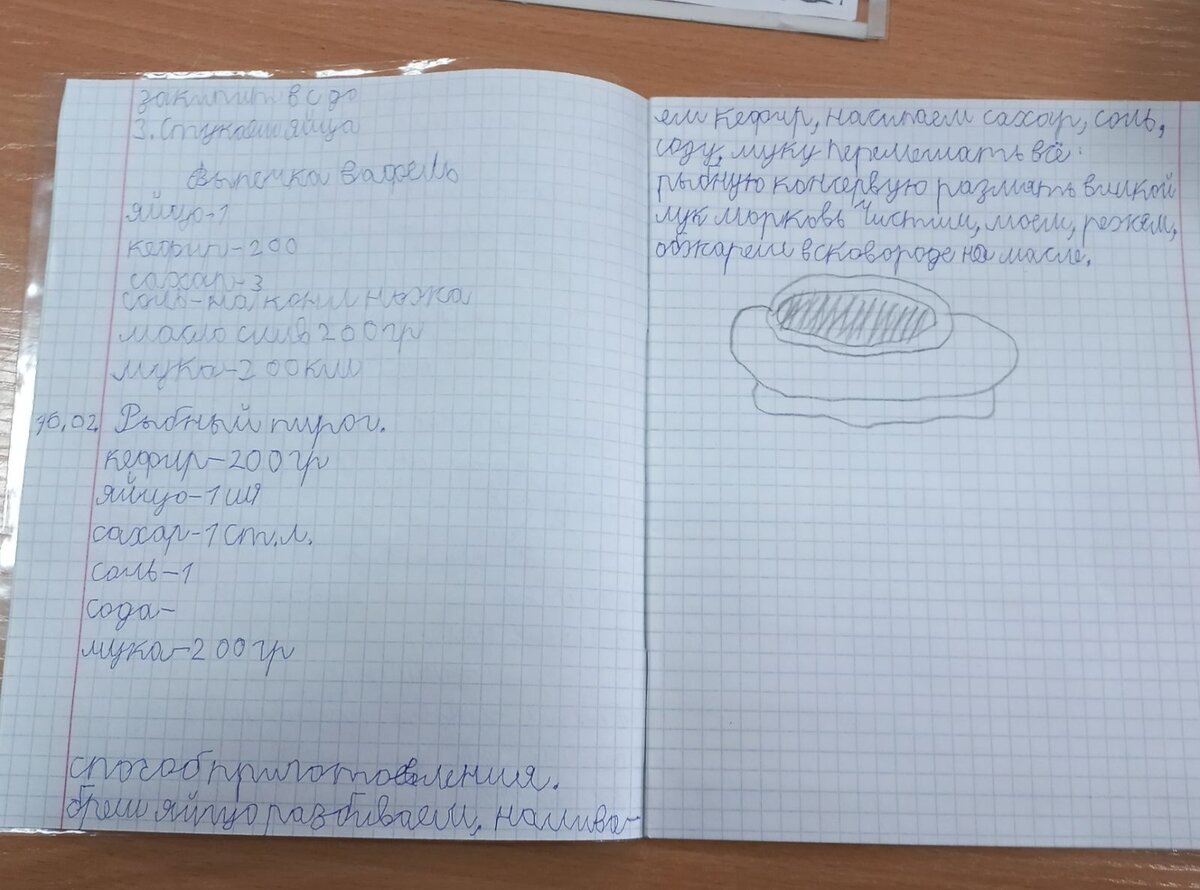 закипит вода
3. Стукаем яйца
Выпечка вафель
яйцо-1
кефир-200
сахар-3
соль-на конч ножа
масло слив 200гр
мука-200
16.02. Рыбный пирог.
кефир-200гр
яйцо-1шт
сахар-1ст.л.
соль-1
сода-
мука-200гр
способ приготовления.
брем яйцо разбиваем, налива-
ем кефир, насыпаем сахар, соль,
соду, муку перемешать всё.
рыбную консервую размять вилкой
лук морковь чистим, моем, режем,
обжарем в сковороде на масле.